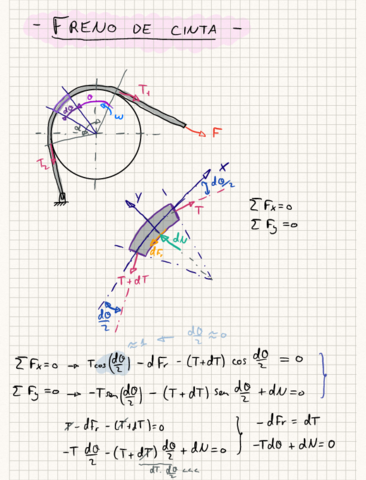 - FRENO DE CINTA -
T1
θ
dθ
α
ω
F
T2
x
y
dθ/2
T
dN
dFr
T+dT
dθ/2
ΣFx=0
ΣFy=0
≈1 ← dθ/2 ≈0
ΣFx=0 → Tcos(dθ/2) - dFr - (T+dT) cos dθ/2 = 0
ΣFy=0 → -Tsen(dθ/2) - (T+dT) sen dθ/2 + dN=0
T - dFr - (T+dT)=0
- dFr = dT
-T dθ/2 - (T+dT) dθ/2 + dN=0
-Tdθ + dN=0
dT. dθ/2 <<<